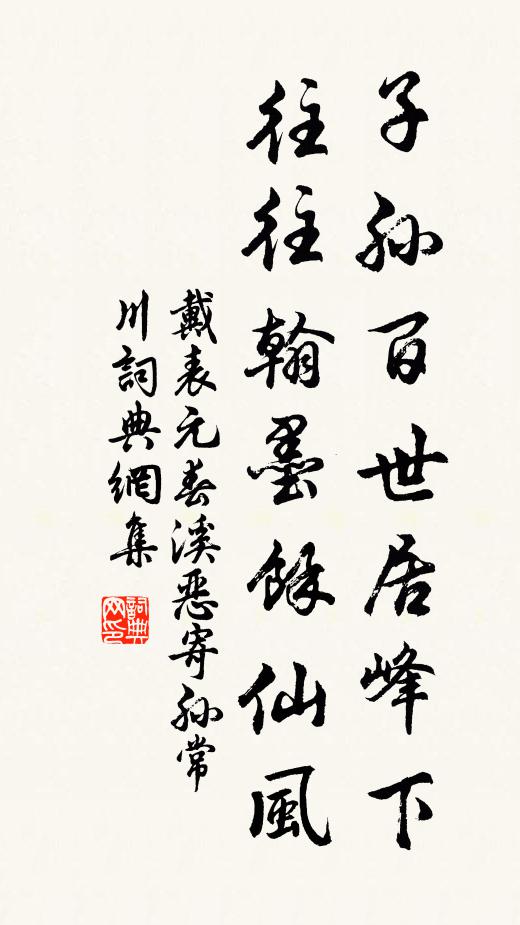 子孙百世居峰下
往往翰墨餘仙風
戴表元春溪惡寄孙常
川詞典網集
詞典网印